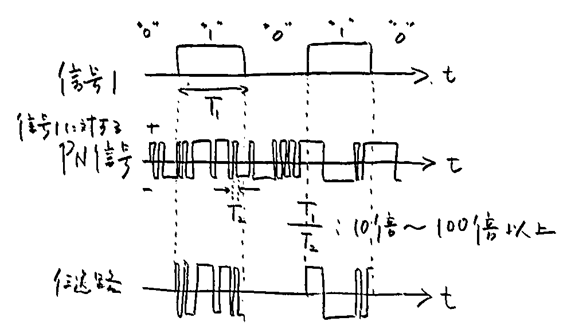 "0" "1" "0" "1" "0"
信号1
t
T₁
信号1に対する
+
PN信号
t
-
T₂
T₁/T₂ : 10倍～100倍以上
伝送路
t